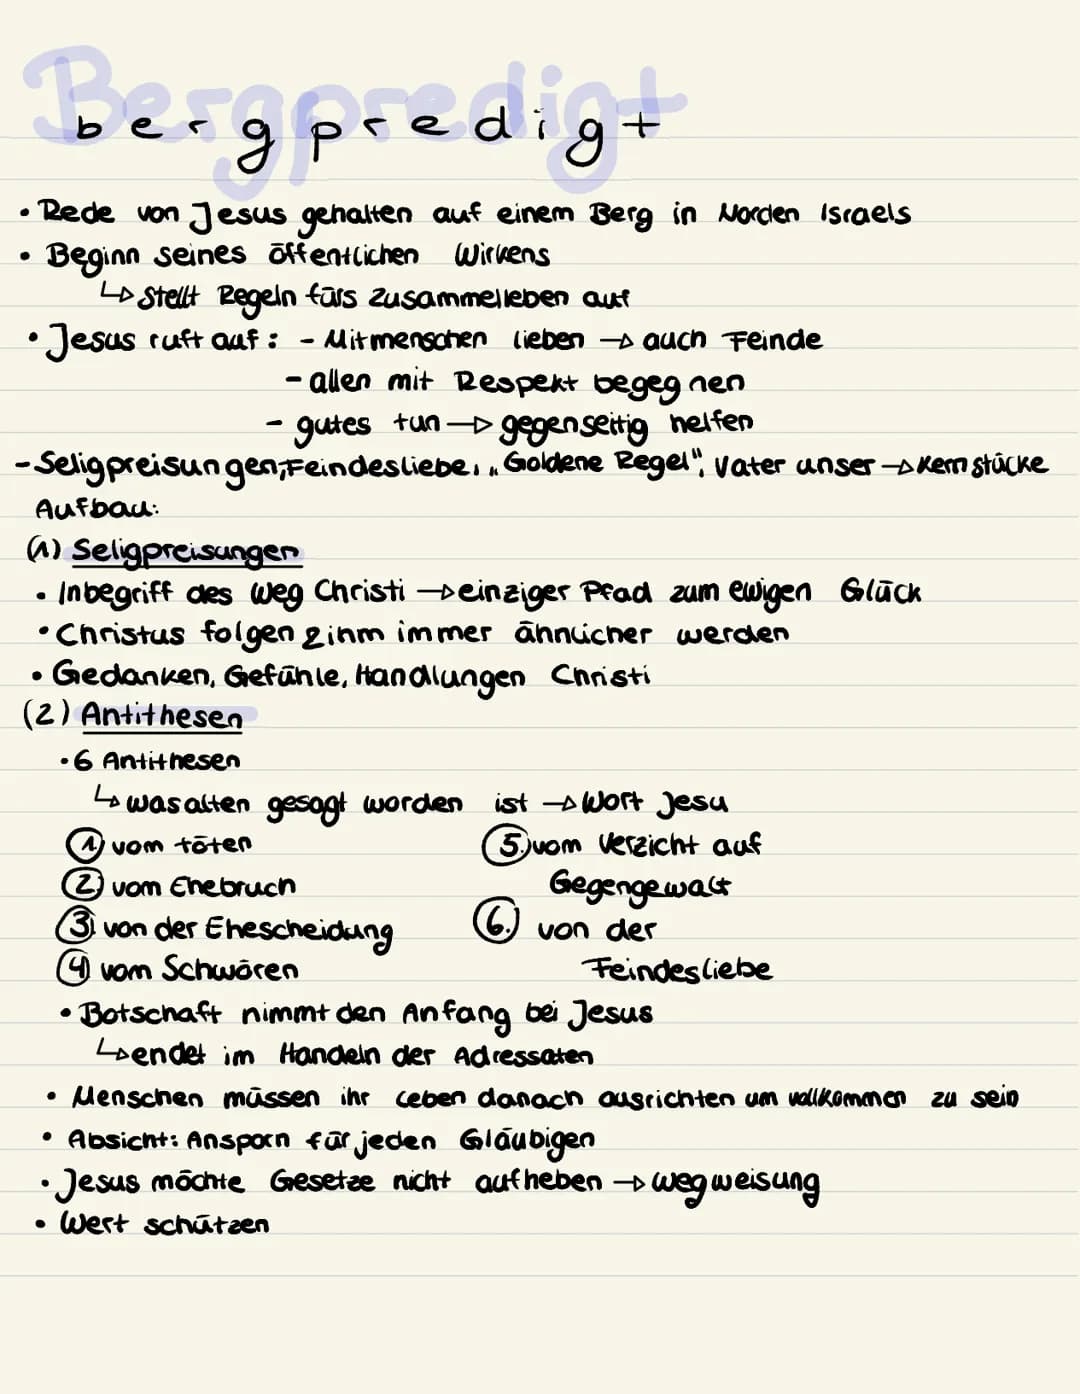 Bergpredigt
bergpredigt
• Rede von Jesus gehalten auf einem Berg in Norden Israels
• Beginn seines öffentlichen Wirkens
↳ stellt Regeln fürs zusammelleben auf
• Jesus ruft auf: - Mitmenschen lieben → auch Feinde
- allen mit Respekt begegnen
- gutes tun → gegenseitig helfen
- Seligpreisungen, Feindesliebe, „Goldene Regel", Vater unser → Kernstücke
Aufbau:
(1) Seligpreisungen
• Inbegriff des Weg Christi → einziger Pfad zum ewigen Glück
• Christus folgen & ihm immer ähnlicher werden
• Gedanken, Gefühle, Handlungen Christi
(2) Antithesen
• 6 Antithesen
↳ was alten gesagt worden ist → Wort Jesu
1) vom töten
2) vom Ehebruch
3) von der Ehescheidung
4) vom Schwören
5.) vom Verzicht auf
Gegengewalt
6.) von der
Feindesliebe
• Botschaft nimmt den Anfang bei Jesus
↳ endet im Handeln der Adressaten
• Menschen müssen ihr Leben danach ausrichten um vollkommen zu sein
• Absicht: Ansporn für jeden Gläubigen
• Jesus möchte Gesetze nicht aufheben → wegweisung
• Wert schützen